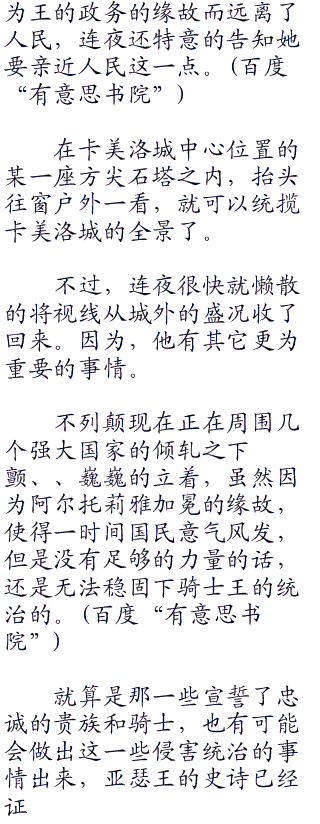 为王的政务的缘故而远离了
人民，连夜还特意的告知她
要亲近人民这一点。(百度
“有意思书院”)
在卡美洛城中心位置的
某一座方尖石塔之内，抬头
往窗户外一看，就可以统揽
卡美洛城的全景了。
不过，连夜很快就懒散
的将视线从城外的盛况收了
回来。因为，他有其它更为
重要的事情。
不列颠现在正在周围几
个强大国家的倾轧之下
颤、、巍巍的立着，虽然因
为阿尔托莉雅加冕的缘故，
使得一时间国民意气风发，
但是没有足够的力量的话，
还是无法稳固下骑士王的统
治的。(百度“有意思书
院”)
就算是那一些宣誓了忠
诚的贵族和骑士，也有可能
会做出这一些侵害统治的事
情出来，亚瑟王的史诗已经
证